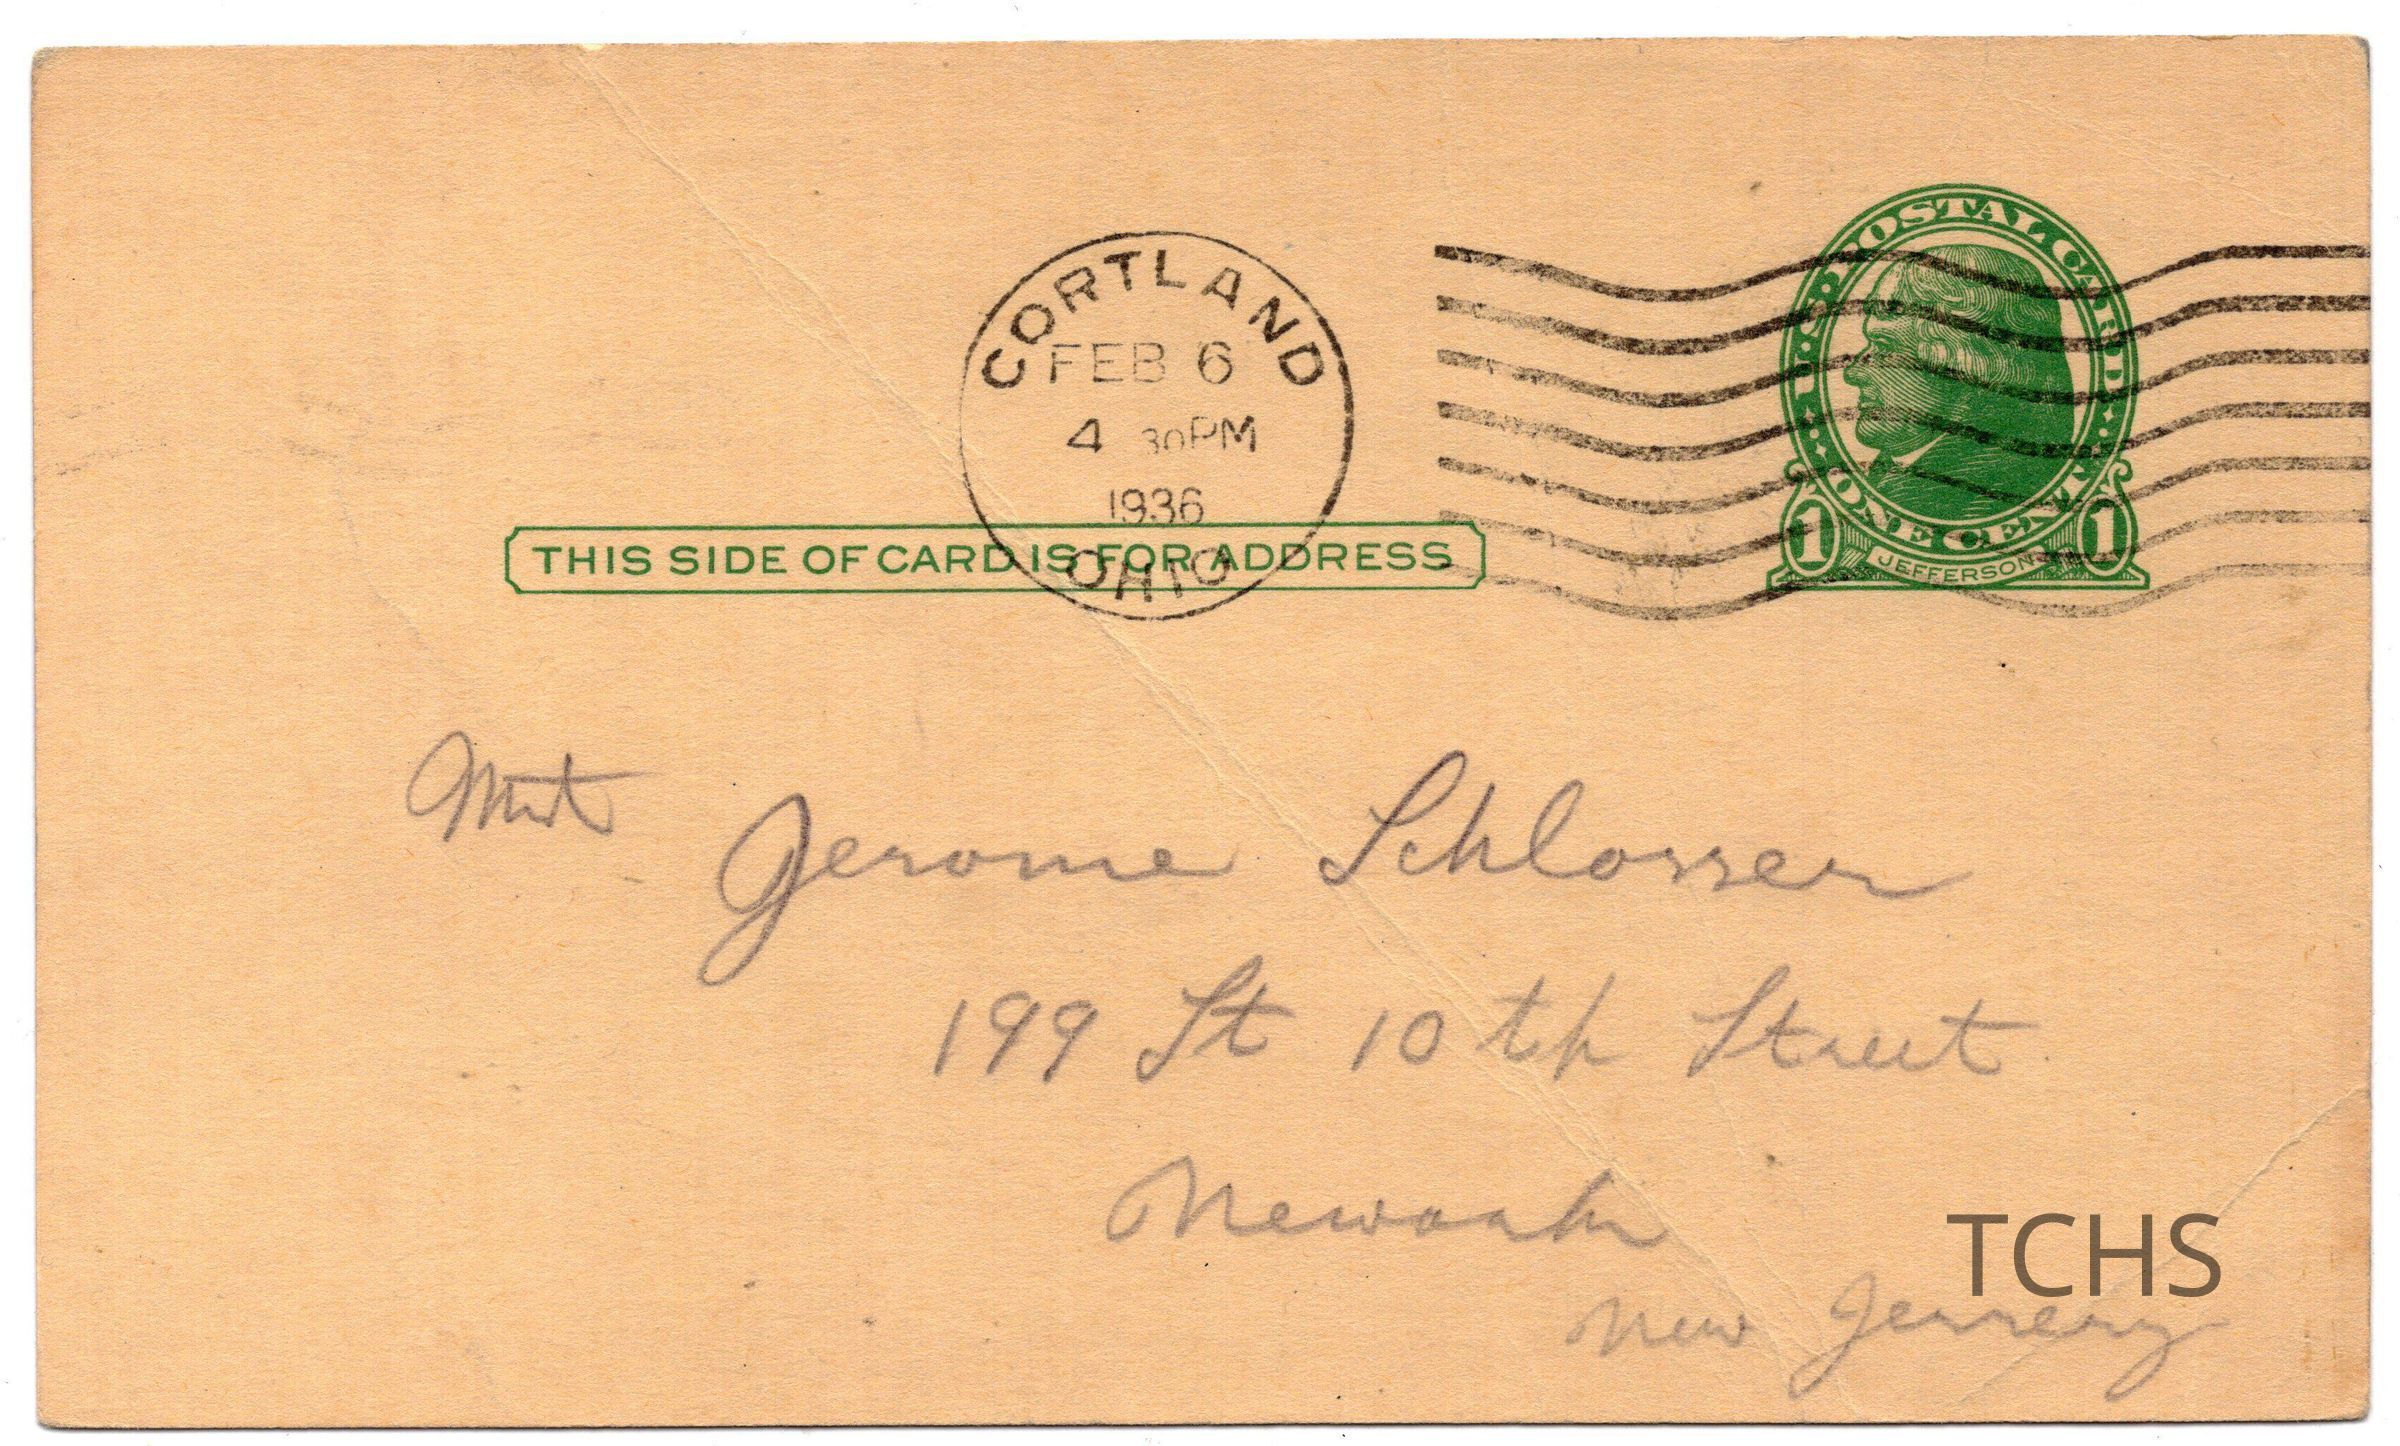 U.S. POSTAL CARD
CORTLAND
FEB 6
4 30PM
1936
OHIO
ONE CENT
1 JEFFERSON 1
THIS SIDE OF CARD IS FOR ADDRESS
Jerome Schlosser
199 St 10th Street
Newark
New Jersey
TCHS